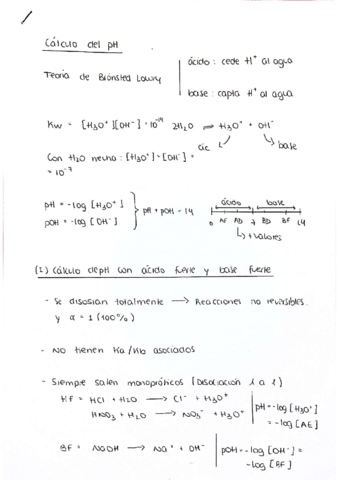 Cálculo del pH
Teoría de Brönsted Lowry
ácido: cede H⁺ al agua
base: capta H⁺ al agua
Kw = [H₃O⁺][OH⁻] = 10⁻¹⁴ 2H₂O ⇌ H₃O⁺ + OH⁻
base
Con H₂O neutra: [H₃O⁺] = [OH⁻] =
= 10⁻⁷
pH = -log [H₃O⁺]
pOH = -log [OH⁻]
pH + pOH = 14
ácido base
0 AF AD 7 BD BF 14
↳ + valores
(1) Cálculo de pH con ácido fuerte y base fuerte
- Se disocian totalmente → Reacciones no reversibles
y α = 1 (100%)
- No tienen Ka/Kb asociados
- Siempre salen monopróticos (Disociación 1 a 1)
HCl + H₂O → Cl⁻ + H₃O⁺
HNO₃ + H₂O → NO₃⁻ + H₃O⁺
pH = -log [H₃O⁺]
= -log [AF]
BF = NaOH → Na⁺ + OH⁻
pOH = -log [OH⁻] =
-log [BF]